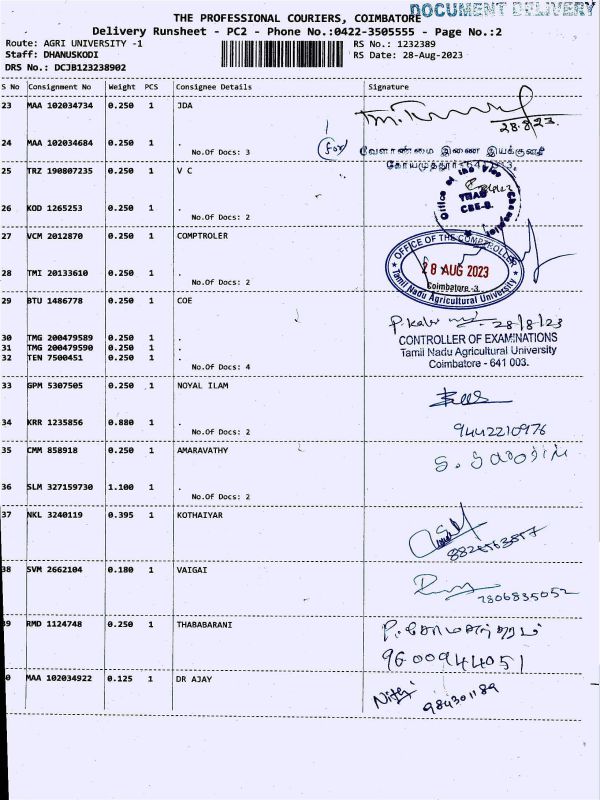 DOCUMENT DELIVERY
THE PROFESSIONAL COURIERS, COIMBATORE
Delivery Runsheet - PC2 - Phone No.:0422-3505555 - Page No.:2
Route: AGRI UNIVERSITY -1 RS No.: 1232389
Staff: DHANUSKODI RS Date: 28-Aug-2023
DRS No.: DCJB123238902
S No Consignment No Weight PCS Consignee Details Signature
23 MAA 102034734 0.250 1 JDA
28.8.23.
24 MAA 102034684 0.250 1 .
No.Of Docs: 3 (for) வேளாண்மை இணை இயக்குனர்
கோயமுத்தூர்-641 013.
25 TRZ 190807235 1 V C
Office of the Vice
TNAU
CBE-3.
26 KOD 1265253 0.250 1 .
No.Of Docs: 2
27 VCM 2012870 0.250 1 COMPTROLER
OFFICE OF THE COMPTROLLER
28 AUG 2023
Coimbatore -3.
Tamil Nadu Agricultural University
28 TMI 20133610 0.250 1 .
No.Of Docs: 2
29 BTU 1486778 0.250 1 COE
28/8/23
30 TMG 200479589 0.250 1 .
CONTROLLER OF EXAMINATIONS
31 TMG 200479590 0.250 1 .
Tamil Nadu Agricultural University
32 TEN 7500451 0.250 1 .
Coimbatore - 641 003.
No.Of Docs: 4
33 GPM 5307505 0.250 1 NOYAL ILAM
34 KRR 1235856 0.880 1 .
No.Of Docs: 2 9442210976
35 CMM 858918 0.250 1 AMARAVATHY
36 SLM 327159730 1.100 1 .
No.Of Docs: 2
37 NKL 3240119 0.395 1 KOTHAIYAR
38 SVM 2662104 0.180 1 VAIGAI
7806835052
39 RMD 1124748 0.250 1 THABABARANI
9600944051
0 MAA 102034922 0.125 1 DR AJAY
984301189